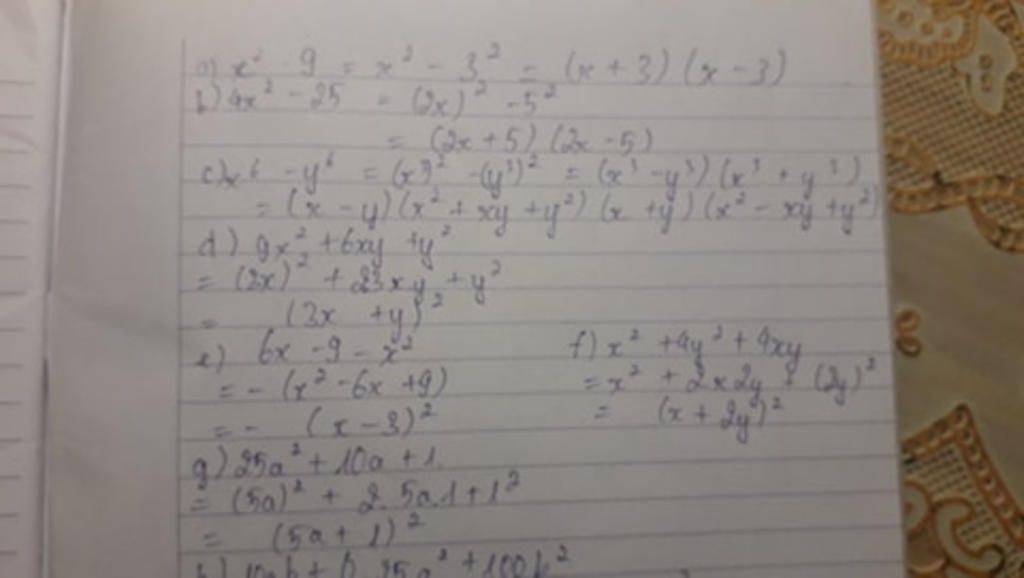 a) x² - 9 = x² - 3² = (x + 3) (x - 3)
b) 4x² - 25 = (2x)² - 5²
= (2x + 5) (2x - 5)
c) x⁶ - y⁶ = (x³)² - (y³)² = (x³ - y³) (x³ + y³)
= (x - y) (x² + xy + y²) (x + y) (x² - xy + y²)
d) 9x² + 6xy + y²
= (3x)² + 23xy + y²
= (3x + y)²
e) 6x - 9 - x²
= - (x² - 6x + 9)
= - (x - 3)²
f) x² + 4y² + 4xy
= x² + 2x2y + (2y)²
= (x + 2y)²
g) 25a² + 10a + 1
= (5a)² + 2.5a.1 + 1²
= (5a + 1)²
h) 10ab + 0,25a² + 100b²